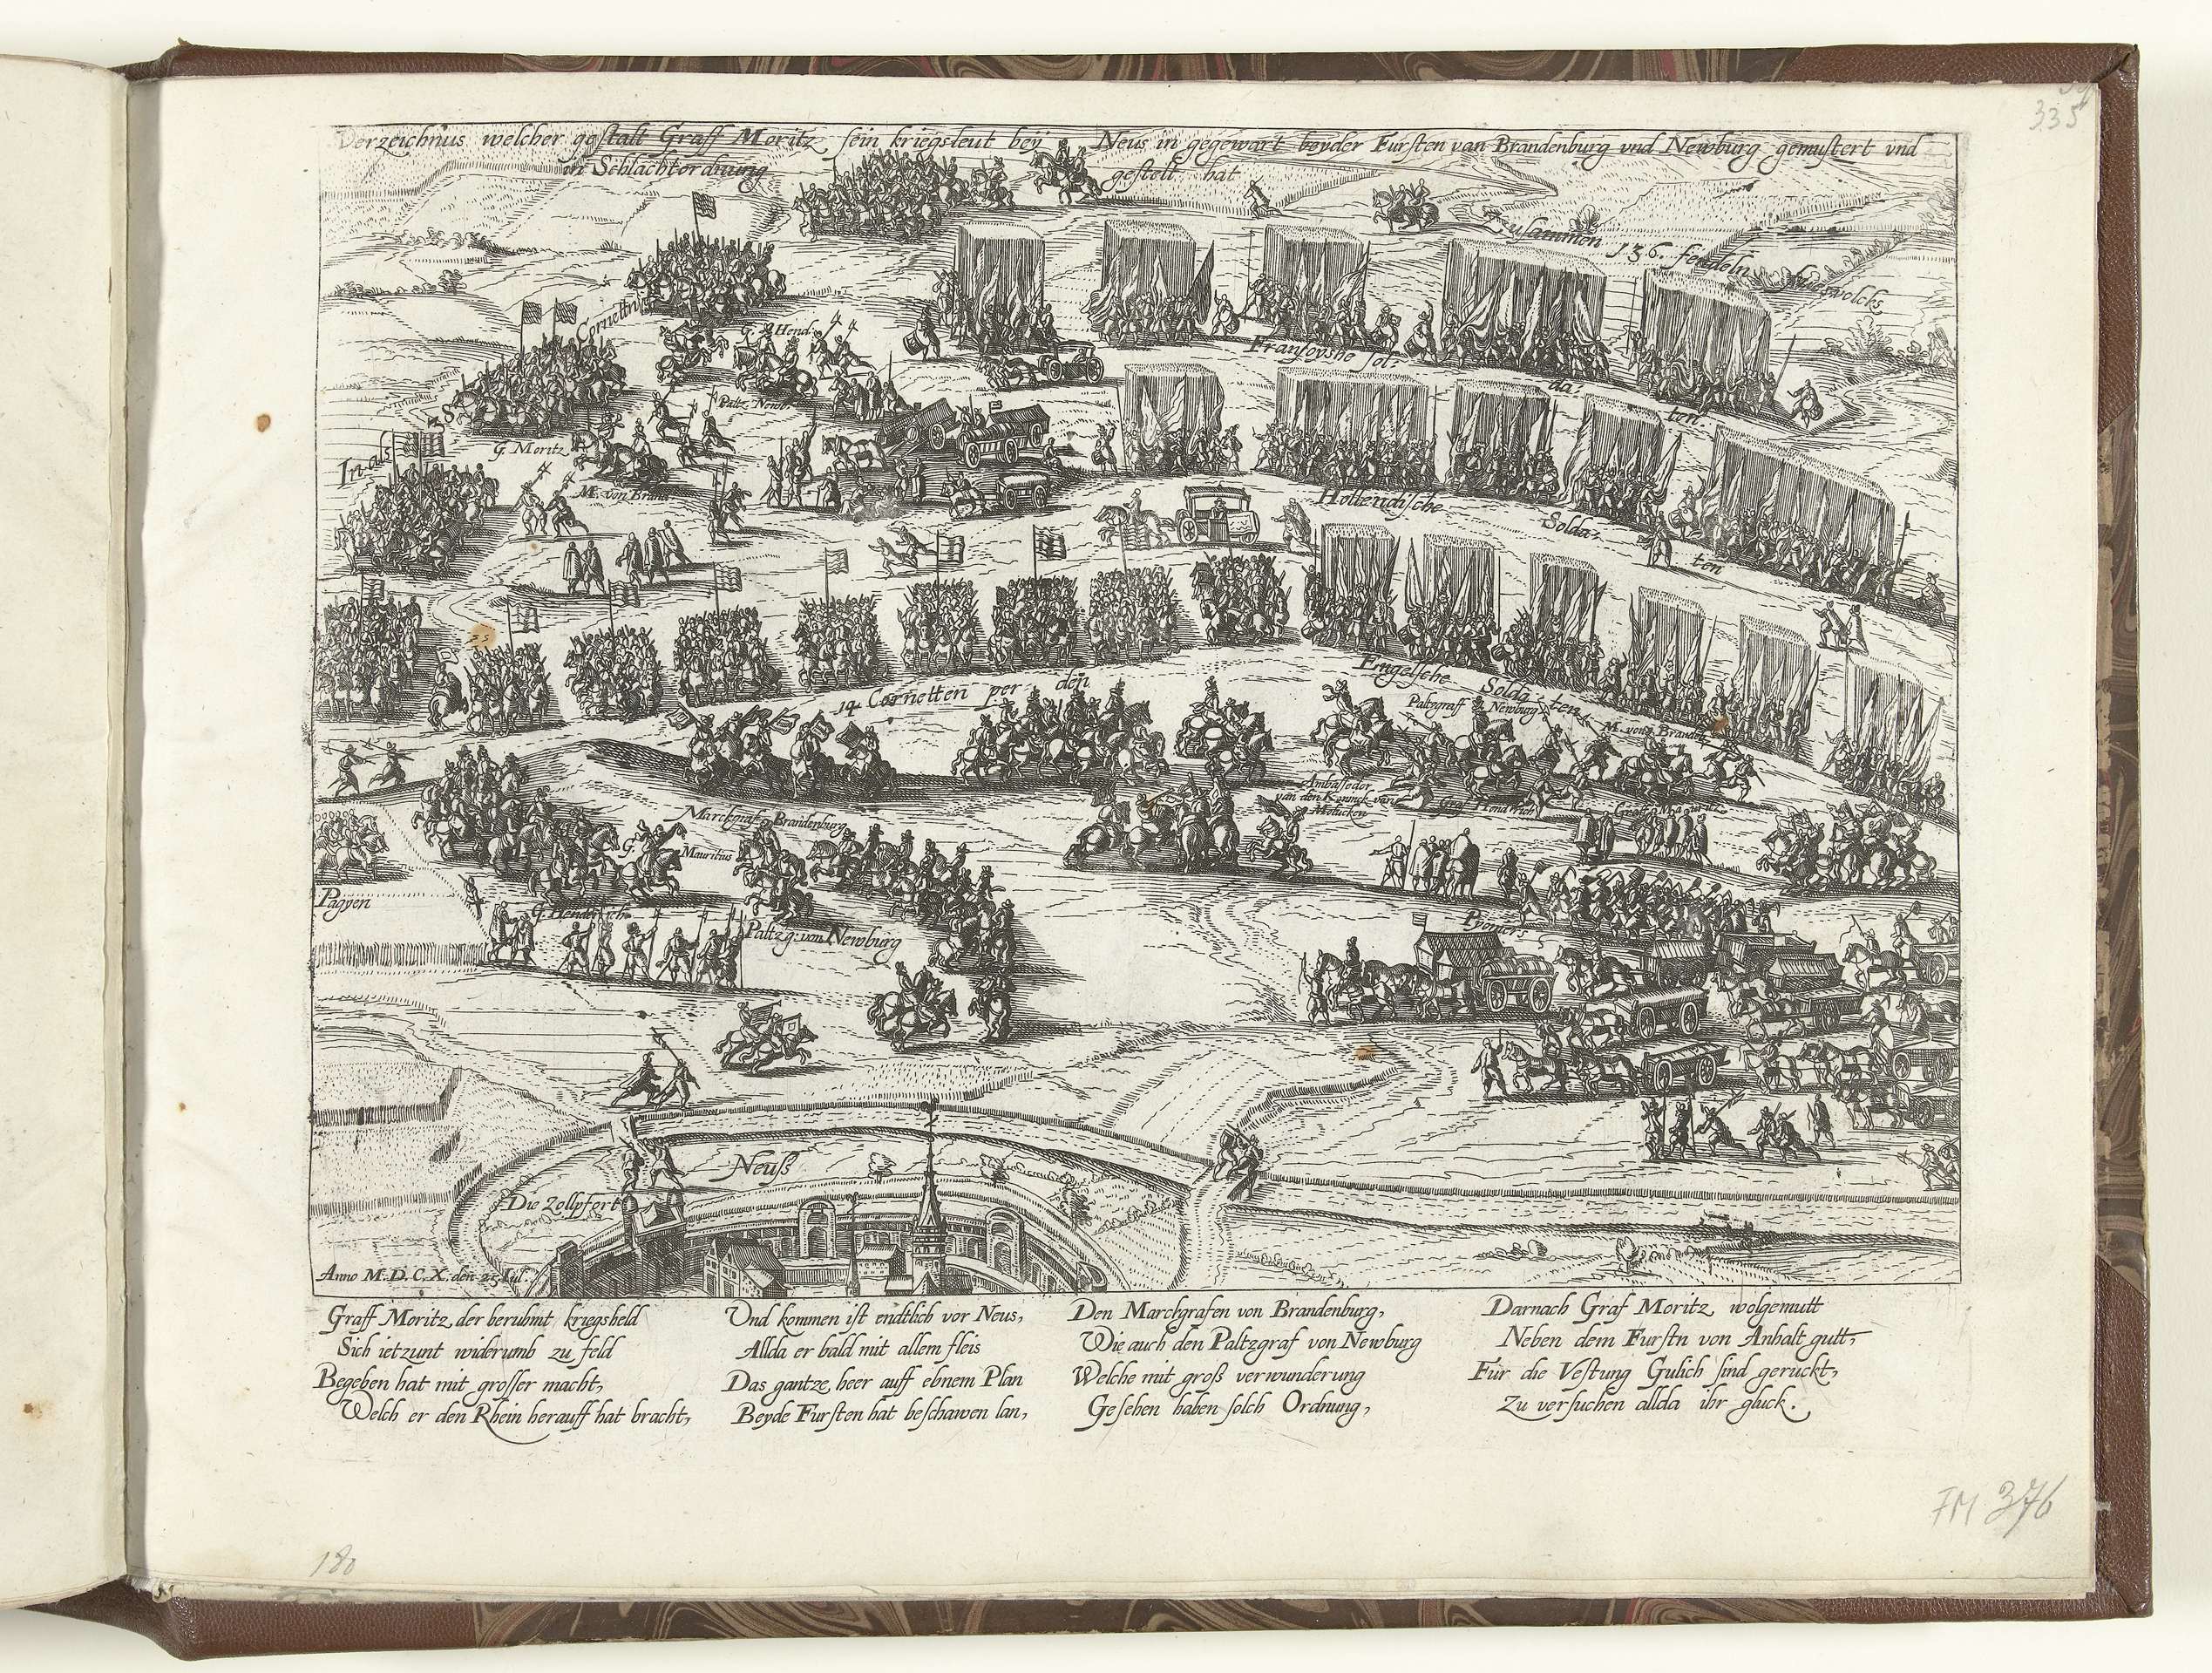 335
Verzeichnus welcher gestalt Graff Moritz, sein kriegsleut bey Neus in gegewart beyder Fursten van Brandenburg vnd Newburg gemustert vnd
in Schlachtordnung gestelt hat
Zusammen 136. fendeln fuesvolcks
Cornetten
G. Hend.
Fransoyshe sol: da: ten.
Paltz. Newb.
G. Moritz
In als
M. von Brand.
Hollendische Solda: ten
14 Cornetten per den
Engelsche Solda: ten
Paltzgraff Newburg
M. von Brand
Ambassador
van den Konnck van
Graf Hendrich
Marckgraf Brandenburg
G. Mauritius
Pagyen
G. Henderich
Paltzg: von Newburg
Pyoniers
Neuß
Die Zollpfort
Anno M.D.C.X. den 25 Iul.
Graff Moritz der beruhmt kriegsheld
Sich ietzunt widerumb zu feld
Begeben hat mit grosser macht,
Welch er den Rhein herauff hat bracht,
Und kommen ist endtlich vor Neus,
Allda er bald mit allem fleis
Das gantze heer auff ebnem Plan
Beyde Fursten hat beschawen lan,
Den Marckgrafen von Brandenburg,
Wie auch den Paltzgraf von Newburg
Welche mit groß verwunderung
Gesehen haben solch Ordnung,
Darnach Graf Moritz wolgemutt
Neben dem Furstn von Anhalt gutt,
Fur die Vestung Gulich sind geruckt,
Zu versuchen allda ihr gluck.
FM 376
180